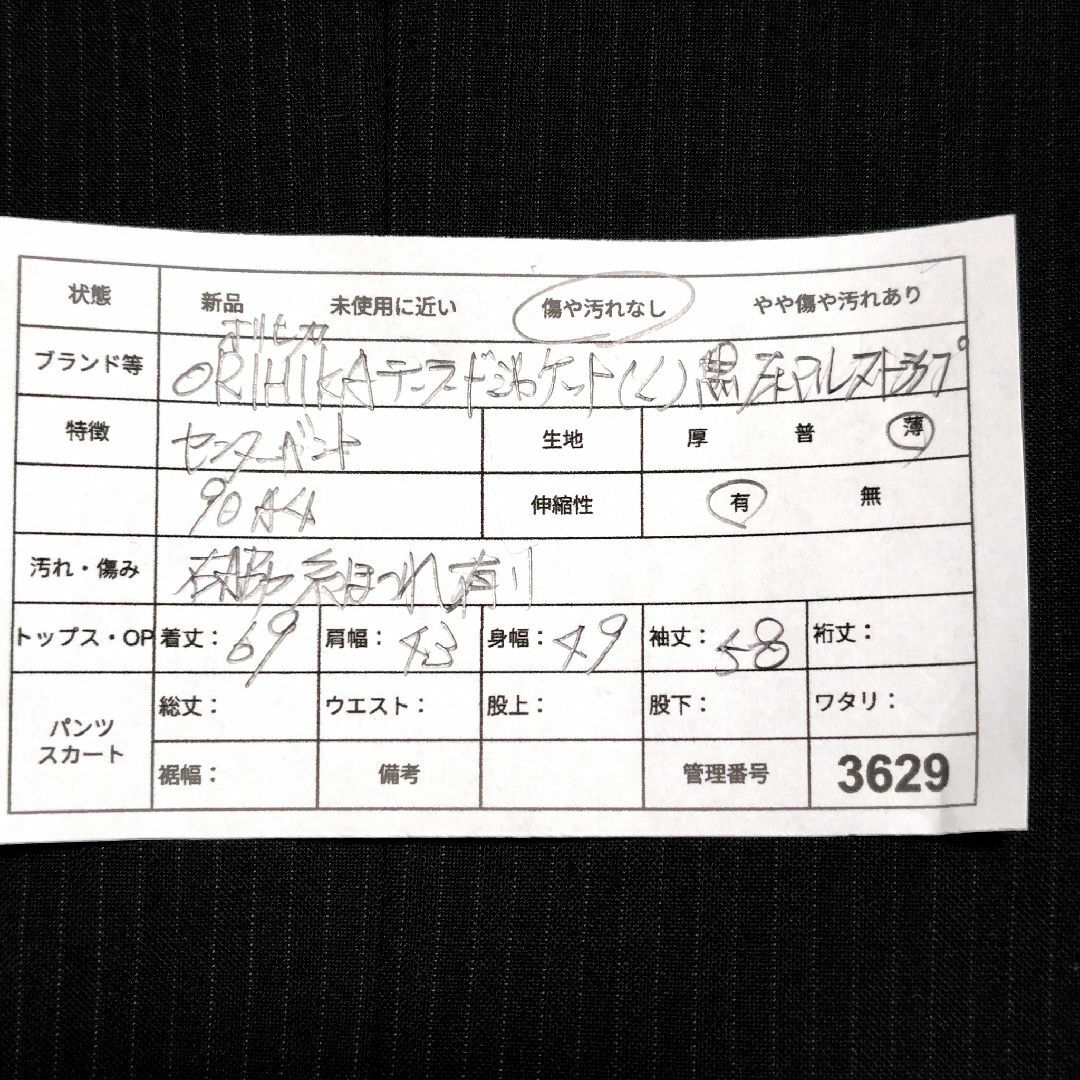 状態 新品 未使用に近い 傷や汚れなし やや傷や汚れあり
オリヒカ
ブランド等 ORIHIKA テーラードジャケット(L) 黒 フォーマル ストライプ
特徴 センターベント 生地 厚 普 薄
90 A4 伸縮性 有 無
汚れ・傷み 糸ほつれ有り
トップス・OP 着丈: 69 肩幅: 43 身幅: 49 袖丈: 58 裄丈:
パンツ スカート 総丈: ウエスト: 股上: 股下: ワタリ:
裾幅: 備考 管理番号 3629